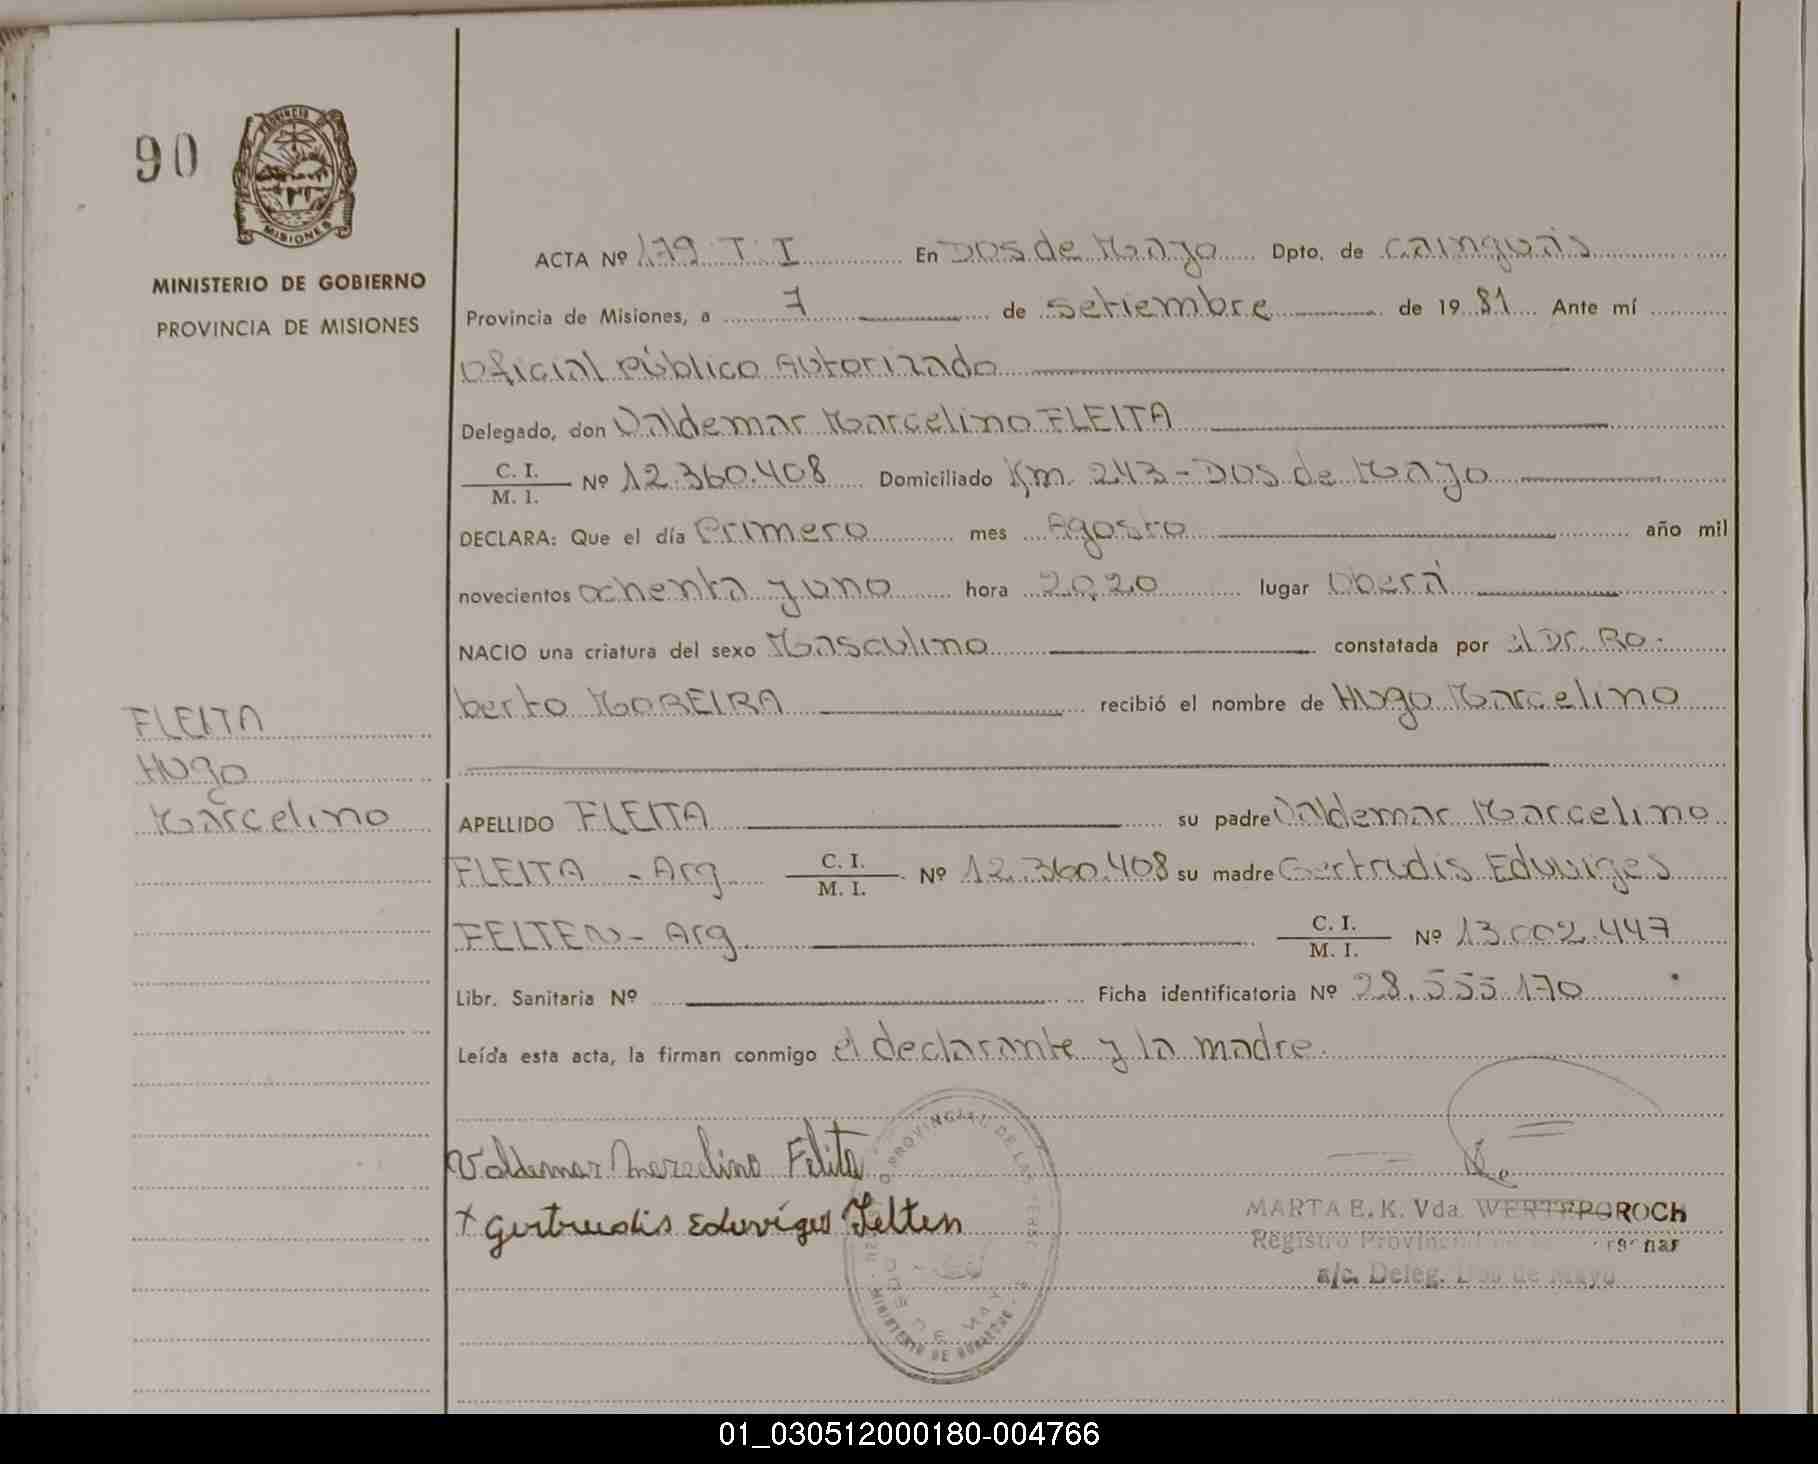 90
PROVINCIA DE
MISIONES
MINISTERIO DE GOBIERNO
PROVINCIA DE MISIONES
ACTA Nº 179 T I En Dos de Mayo Dpto. de Cainguás
Provincia de Misiones, a 7 de setiembre de 1981 Ante mí
Oficial Público Autorizado
Delegado, don Valdemar Marcelino FLEITA
C. I.
M. I. Nº 12.360.408 Domiciliado Km. 243 - Dos de Mayo
DECLARA: Que el día Primero mes Agosto año mil
novecientos ochenta y uno hora 20,20 lugar Oberá
NACIO una criatura del sexo Masculino constatada por el Dr. Ro-
berto MOREIRA recibió el nombre de Hugo Marcelino
FLEITA
Hugo
Marcelino
APELLIDO FLEITA su padre Valdemar Marcelino
FLEITA - Arg C. I.
M. I. Nº 12.360.408 su madre Gertrudis Eduviges
FELTEN - Arg C. I.
M. I. Nº 13.002.447
Libr. Sanitaria Nº Ficha identificatoria Nº 28.555.170
Leída esta acta, la firman conmigo el declarante y la madre.
Valdemar Marcelino Fleita
x Gertrudis Eduviges Felten
PROVINCIAL DE LAS
MINISTERIO DE GOBIERNO
MARTA E. K. Vda. WERTEPOROCH
Registro Provincial de
a/c. Deleg. Dos de Mayo
01_030512000180-004766